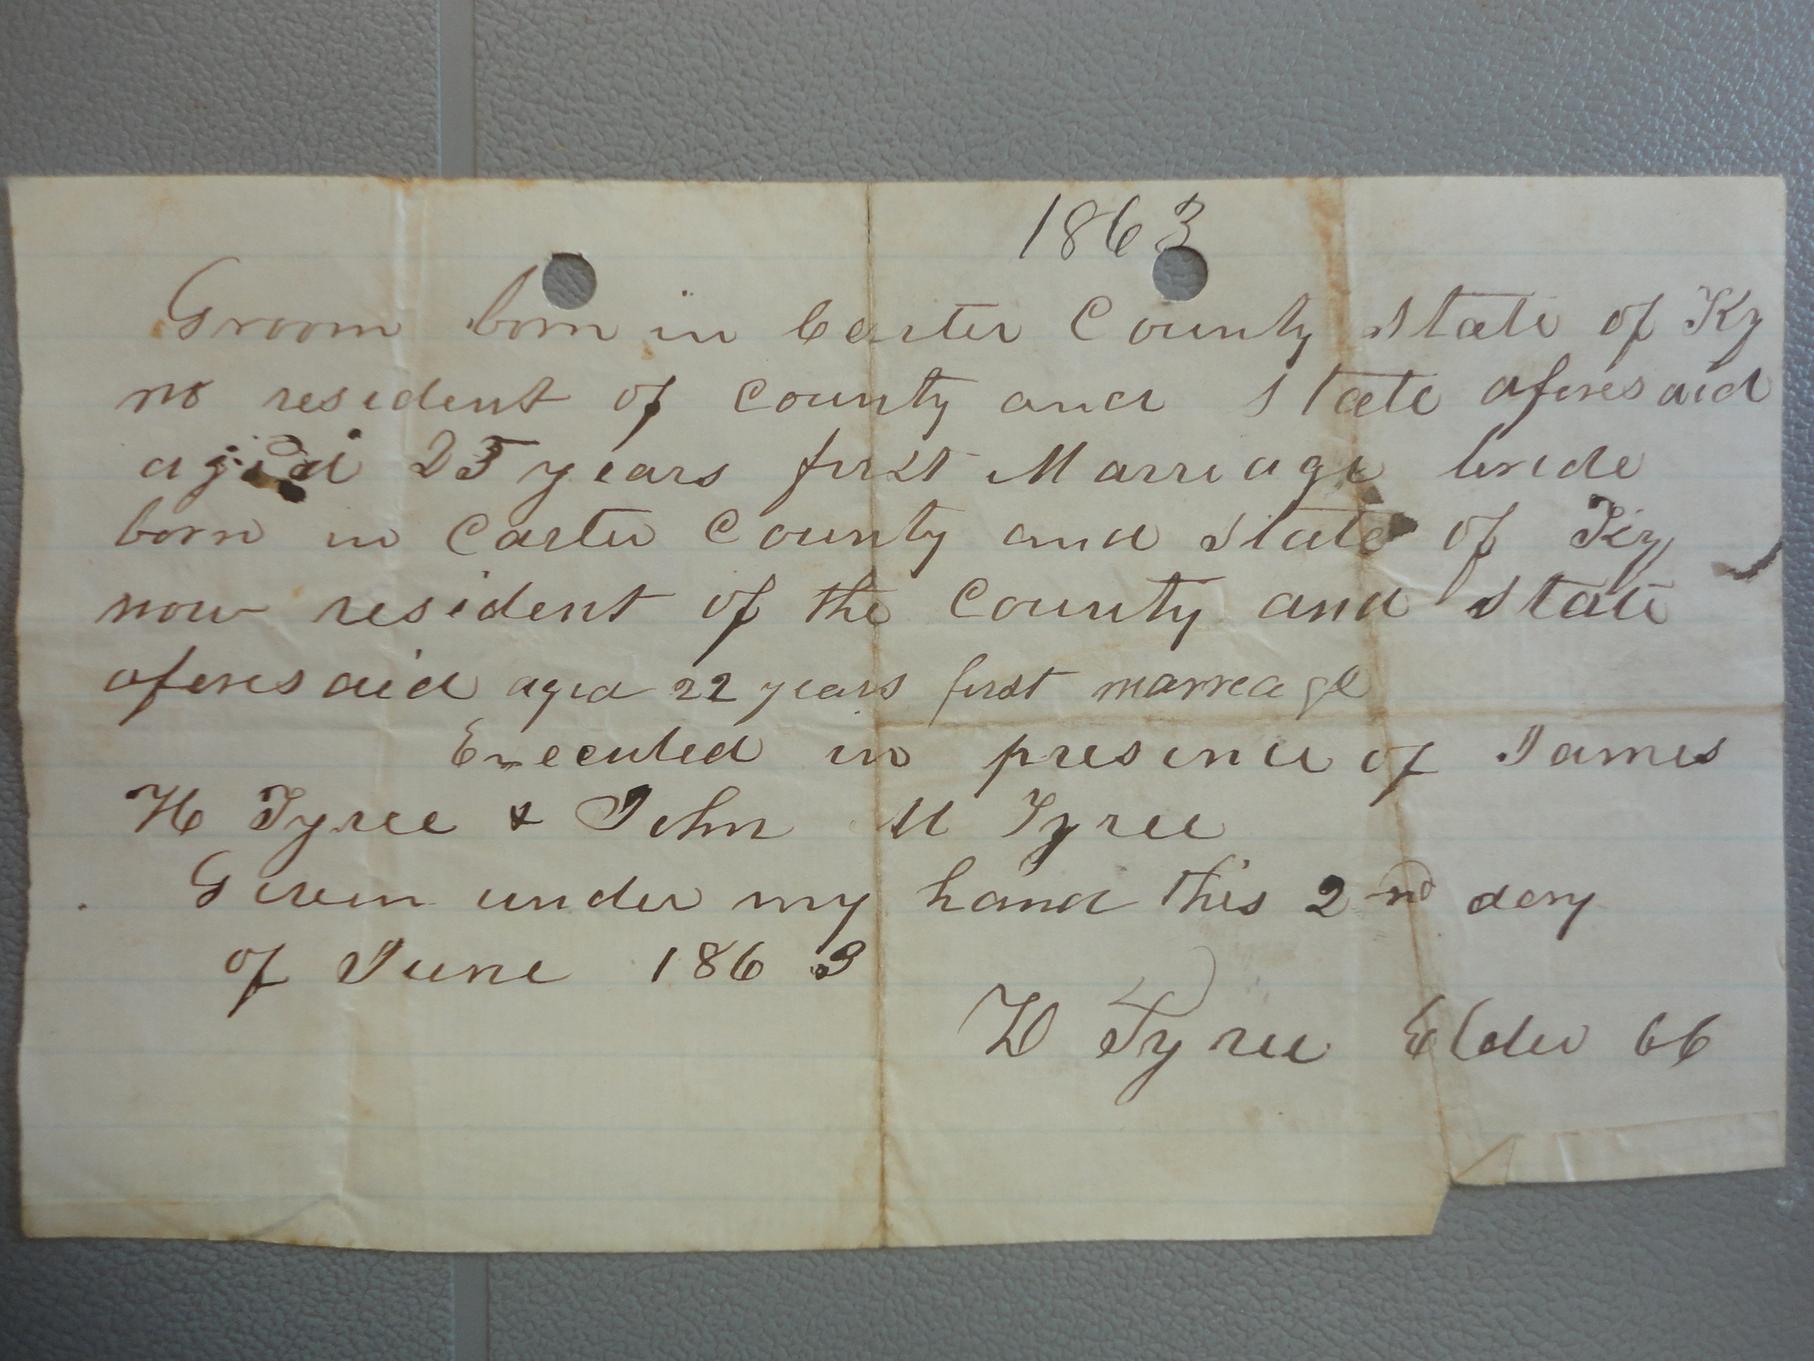 1863
Groom born in Carter County State of Ky
no resident of county and State aforesaid
aged 25 years first Marriage bride
born in Carter County and State of Ky
now resident of the County and State
aforesaid aged 22 years first marreage
Executed in presence of James
H Tyree & John M Tyree
Given under my hand this 2nd day
of June 1863
Tyree Elder